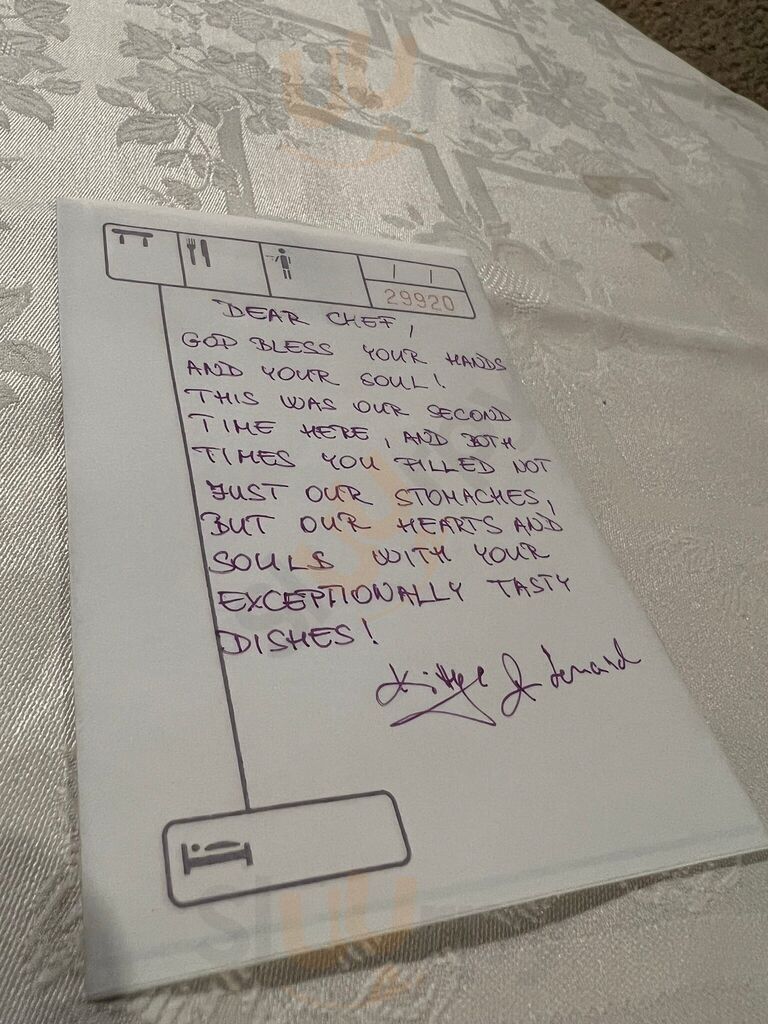 29920
DEAR CHEF,
GOD BLESS YOUR HANDS
AND YOUR SOUL!
THIS WAS OUR SECOND
TIME HERE, AND BOTH
TIMES YOU FILLED NOT
JUST OUR STOMACHES,
BUT OUR HEARTS AND
SOULS WITH YOUR
EXCEPTIONALLY TASTY
DISHES!